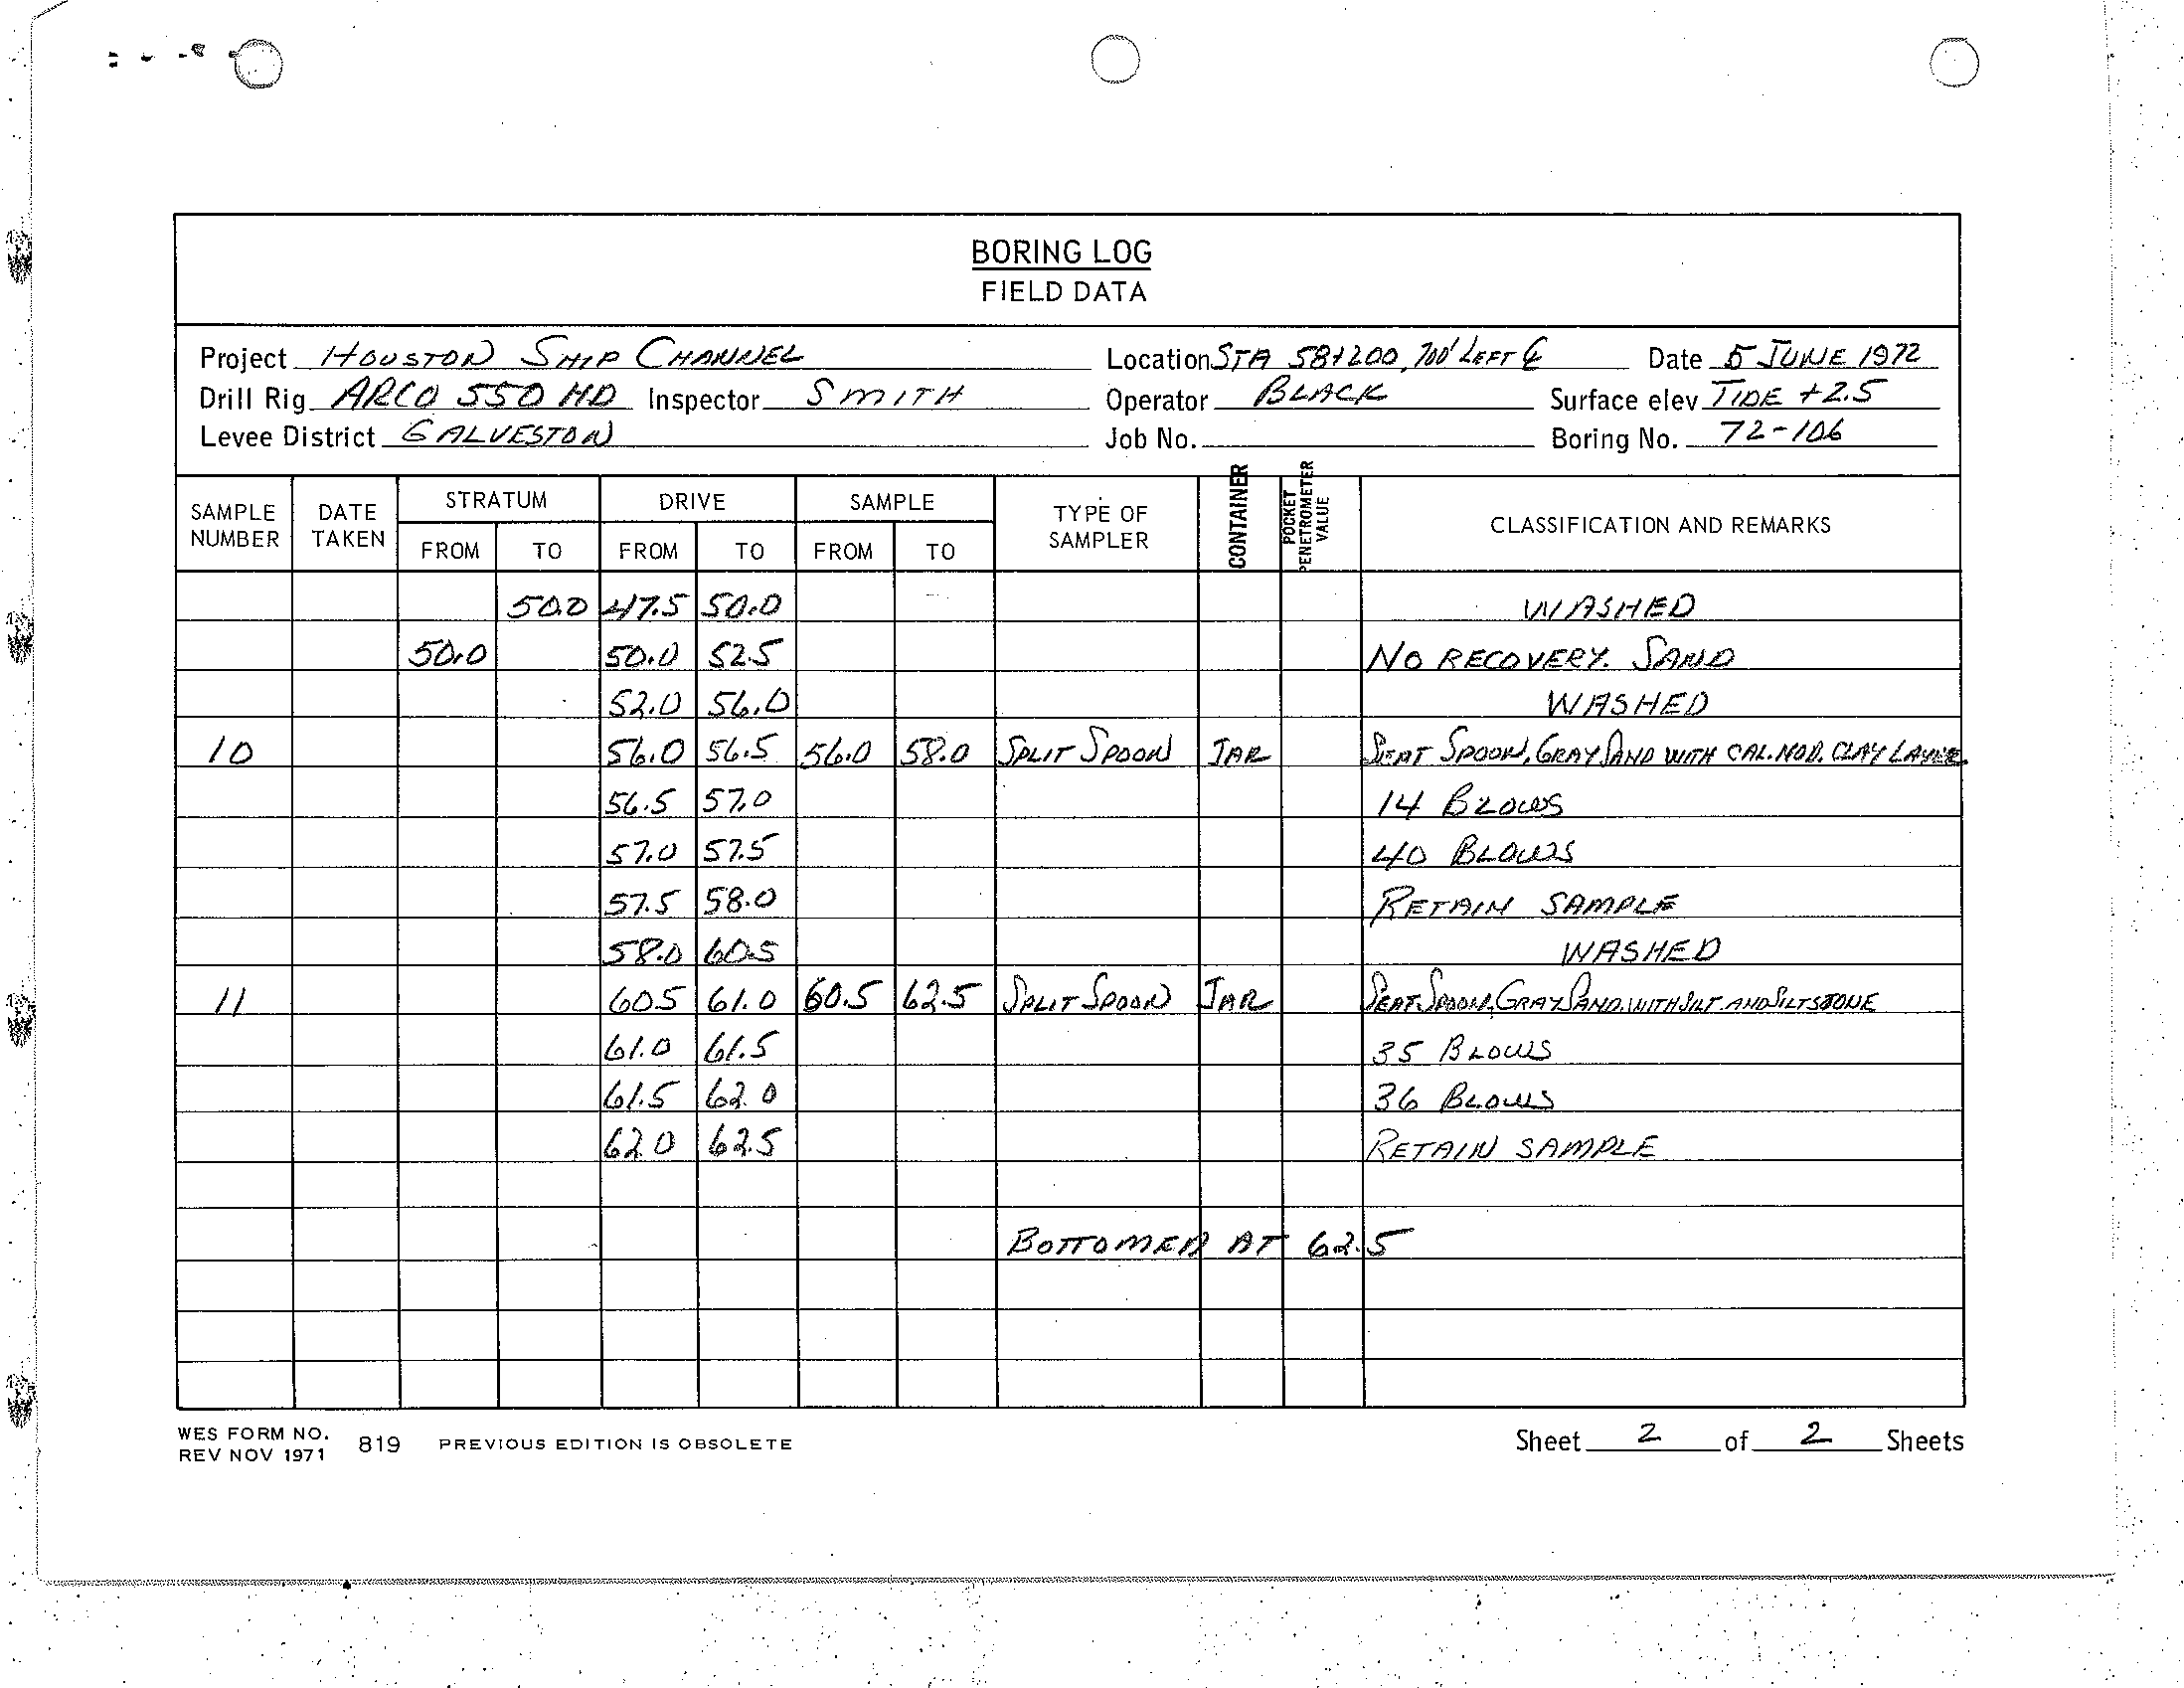 BORING LOG
FIELD DATA
Project HOUSTON SHIP CHANNEL Location STA 58+200, 700' LEFT ℄ Date 5 JUNE 1972
Drill Rig ARCO 550 HD Inspector SMITH Operator BLACK Surface elev TIDE +2.5
Levee District GALVESTON Job No. Boring No. 72-106
SAMPLE NUMBER DATE TAKEN STRATUM FROM TO DRIVE FROM TO SAMPLE FROM TO TYPE OF SAMPLER CONTAINER POCKET PENETROMETER VALUE CLASSIFICATION AND REMARKS
50.0 47.5 50.0 WASHED
50.0 50.0 52.5 NO RECOVERY. SAND
52.0 56.0 WASHED
10 56.0 56.5 56.0 58.0 SPLIT SPOON JAR SEAT SPOON, GRAY SAND WITH CAL. NOD. CLAY LAYER
56.5 57.0 14 BLOWS
57.0 57.5 40 BLOWS
57.5 58.0 RETAIN SAMPLE
58.0 60.5 WASHED
11 60.5 61.0 60.5 62.5 SPLIT SPOON JAR SEAT SPOON, GRAY SAND, WITH SILT AND SILTSTONE
61.0 61.5 35 BLOWS
61.5 62.0 36 BLOWS
62.0 62.5 RETAIN SAMPLE
BOTTOMED AT 62.5
WES FORM NO. 819 PREVIOUS EDITION IS OBSOLETE Sheet 2 of 2 Sheets
REV NOV 1971